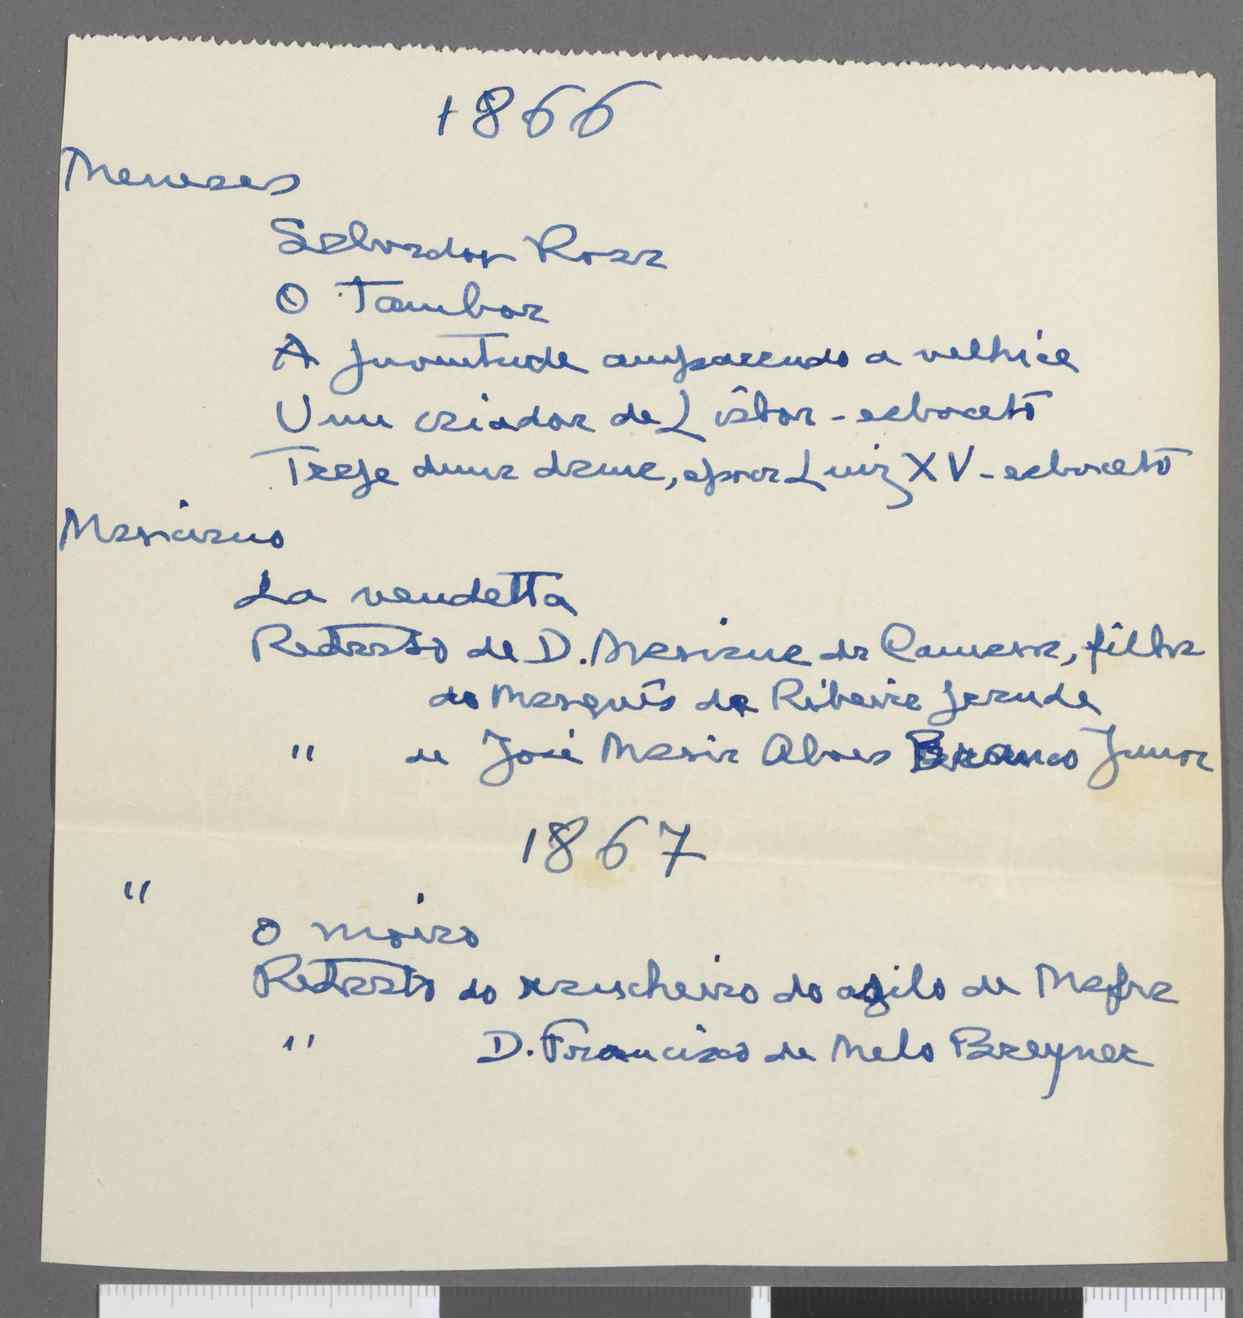 1866
Meneses
Salvador Rosa
O Tambor
A juventude amparando a velhice
Um criador de Lisboa - esboceto
Traje duma dama, epoca Luiz XV - esboceto
Mariano
La vendetta
Retrato de D. Mariana da Camara, filha
do Marquês da Ribeira Grande
" de José Maria Alves Branco Junior
1867
"
O moiro
Retrato do rancheiro do asilo de Mafra
" D. Francisco de Melo Breyner